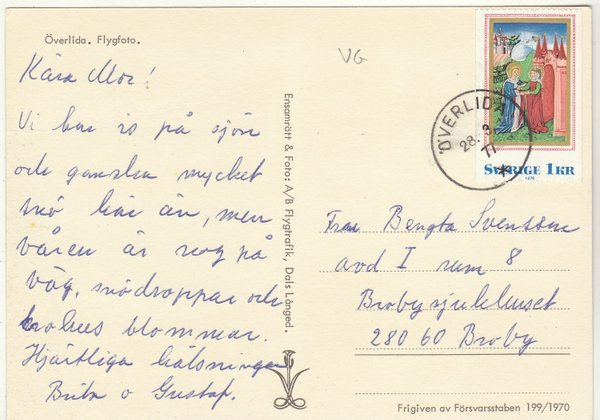 Överlida. Flygfoto.
VG
Kära Mor!
Vi har is på sjön
och ganska mycket
snö här än, men
våren är nog på
väg, snödroppar och
krokus blommar.
Hjärtliga hälsningar
Brita o Gustaf.
Ensamrätt & Foto: A/B Flygtrafik, Dals Långed.
ÖVERLIDA
28. 3
77
SVERIGE 1KR
1976
Fru Bengta Svensson
avd I rum 8
Broby sjukhuset
280 60 Broby
Frigiven av Försvarsstaben 199/1970